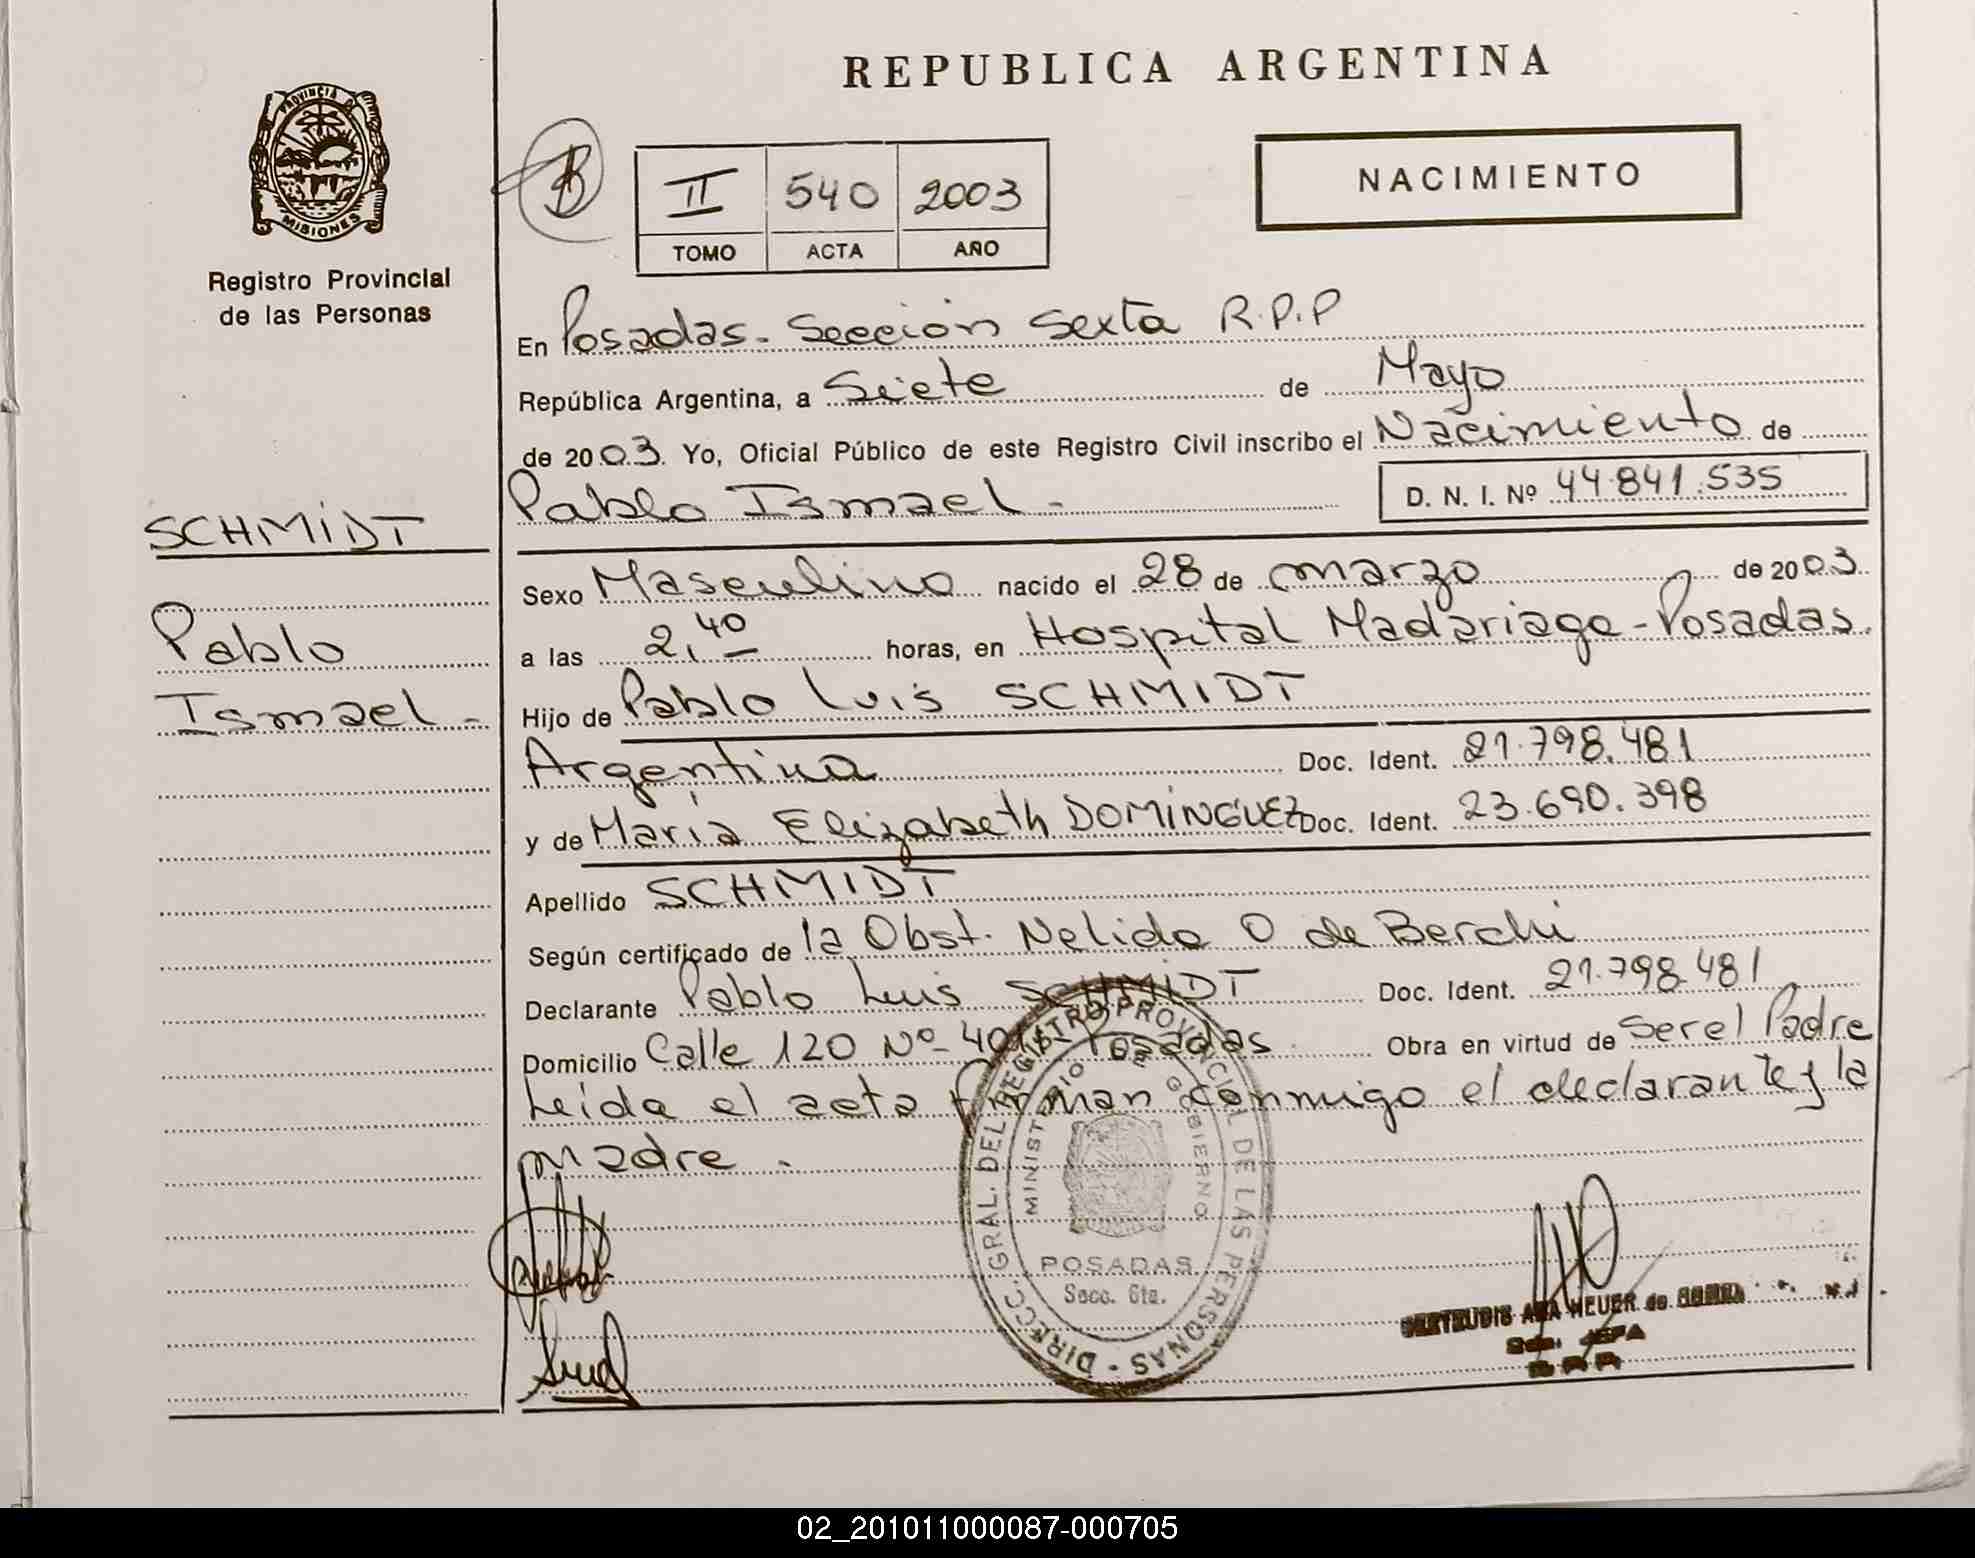 REPUBLICA ARGENTINA
PROVINCIA DE
MISIONES
Registro Provincial
de las Personas
B
II 540 2003
TOMO ACTA AÑO
NACIMIENTO
En Posadas - Sección Sexta R.P.P
República Argentina, a Siete de Mayo
de 2003. Yo, Oficial Público de este Registro Civil inscribo el Nacimiento de
Pablo Ismael - D. N. I. Nº 44.841.535
SCHMIDT
Pablo
Ismael -
Sexo Masculino nacido el 28 de marzo de 2003.
a las 2,40 horas, en Hospital Madariaga - Posadas.
Hijo de Pablo Luis SCHMIDT
Argentina Doc. Ident. 21.798.481
y de María Elizabeth DOMINGUEZ Doc. Ident. 23.690.398
Apellido SCHMIDT
Según certificado de la Obst. Nelida O de Berchi
Declarante Pablo Luis SCHMIDT Doc. Ident. 21.798.481
Domicilio Calle 120 Nº Posadas Obra en virtud de Ser el Padre
Leida el acta firman conmigo el declarante y la
madre -
DIRECC. GRAL. DEL REGISTRO PROVINCIAL DE LAS PERSONAS -
MINISTERIO DE GOBIERNO
POSADAS
Secc. 6ta.
GERTRUDIS ANA HEUER de
JEFA
02_201011000087-000705